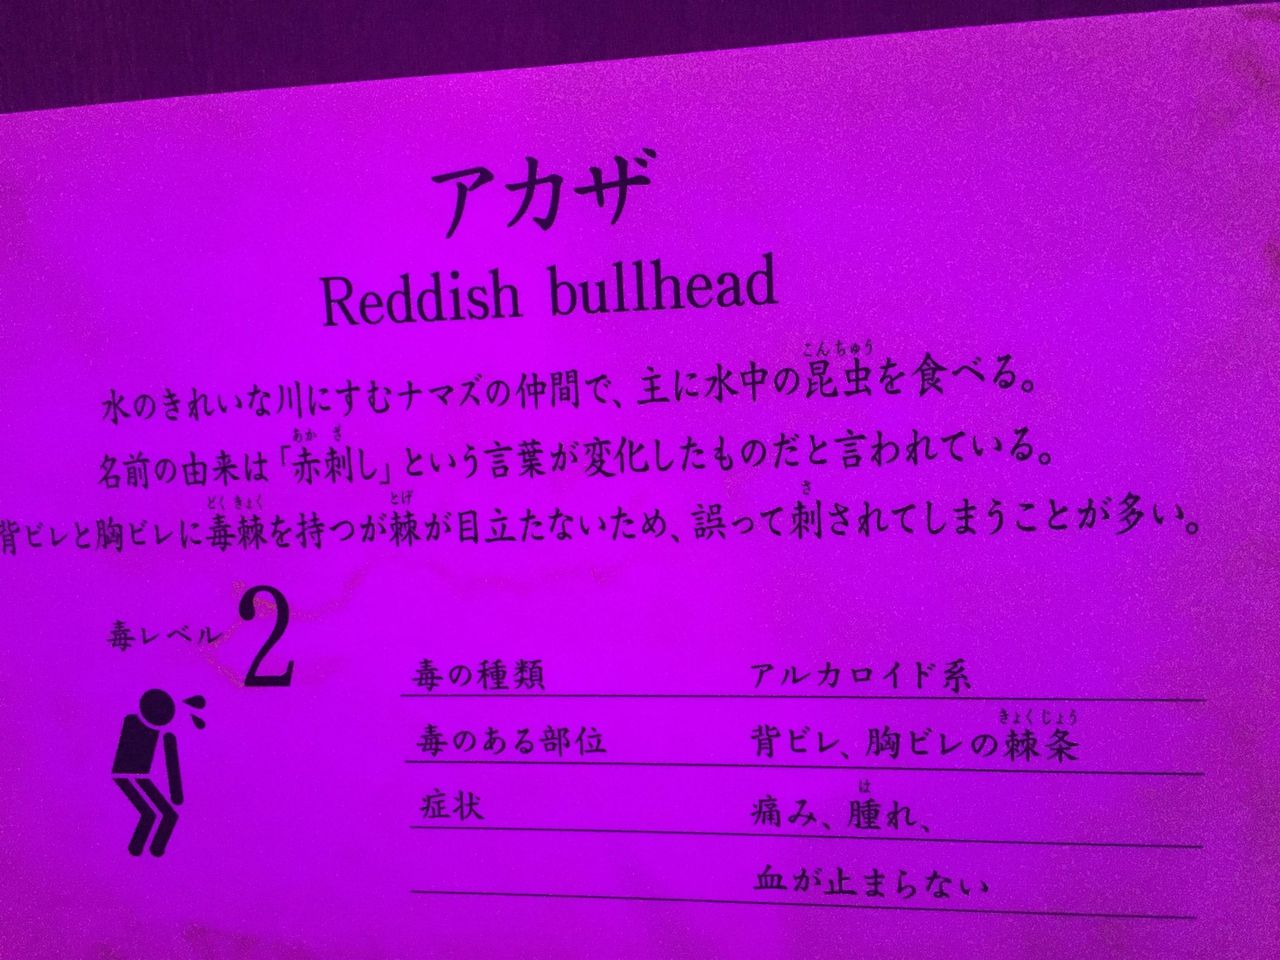 アカザ
Reddish bullhead
水のきれいな川にすむナマズの仲間で、主に水中の昆虫を食べる。
名前の由来は「赤刺し」という言葉が変化したものだと言われている。
背ビレと胸ビレに毒棘を持つが棘が目立たないため、誤って刺されてしまうことが多い。
毒レベル 2
毒の種類 アルカロイド系
毒のある部位 背ビレ、胸ビレの棘条
症状 痛み、腫れ、
血が止まらない